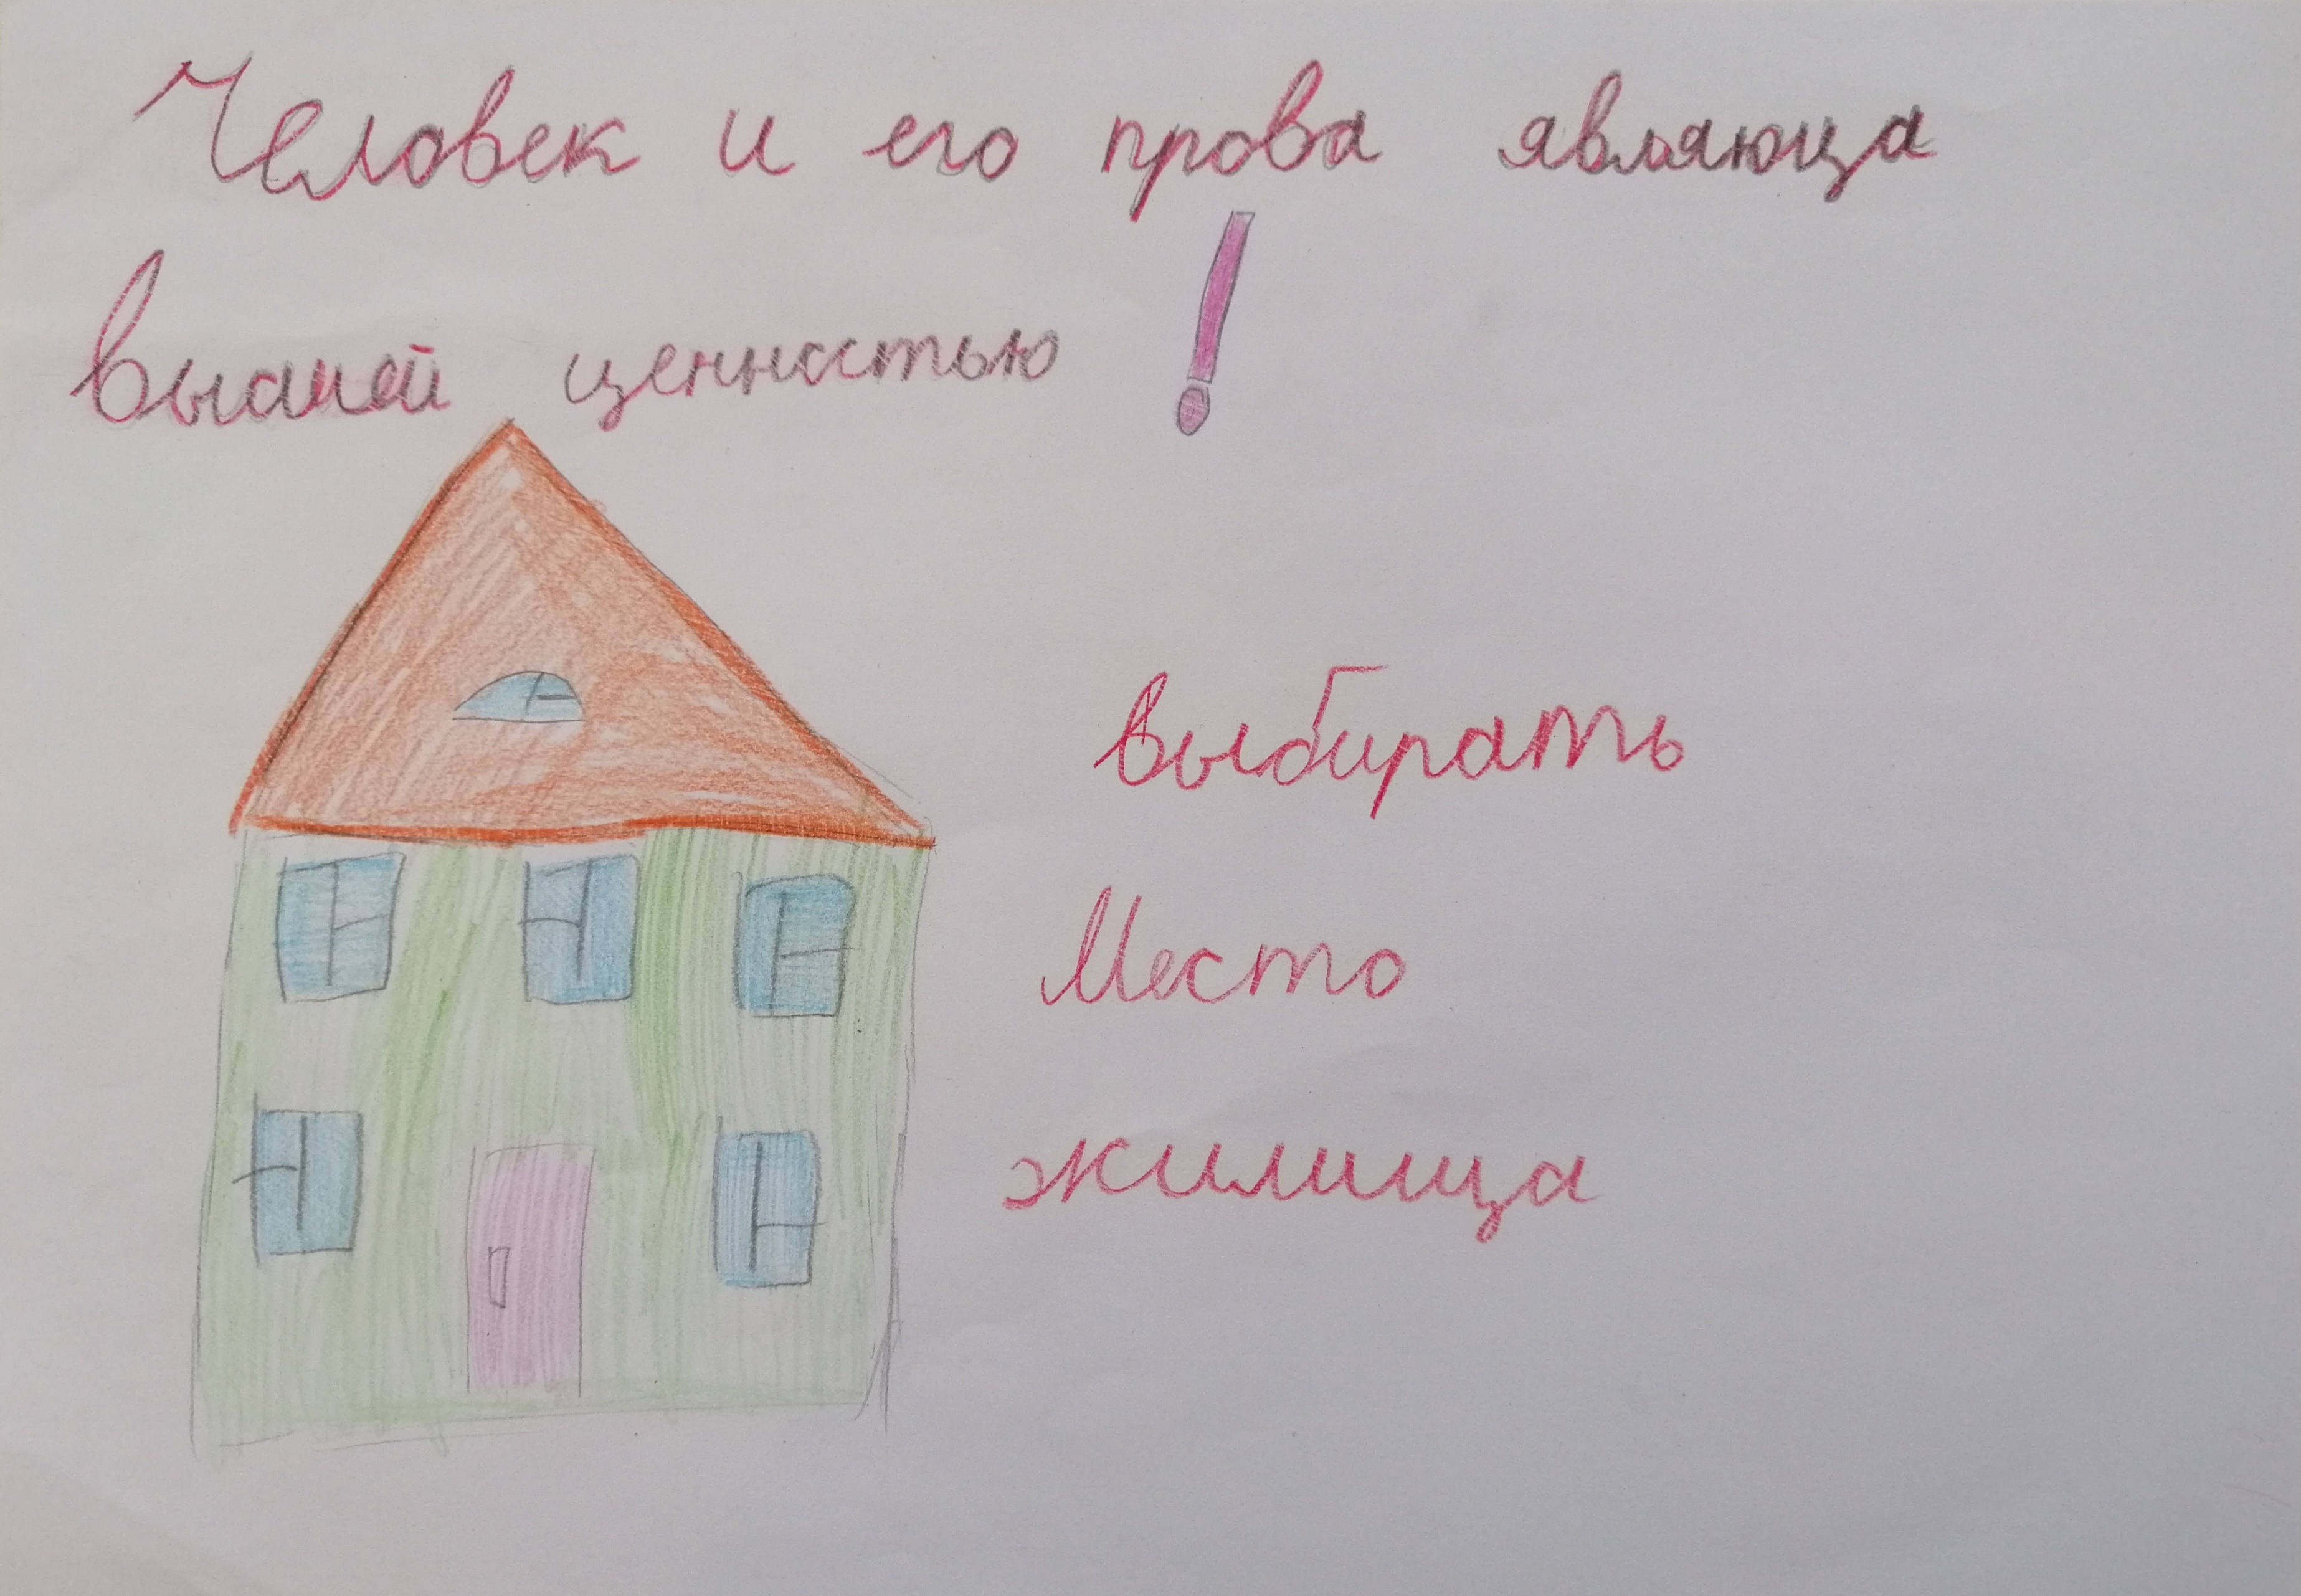 Человек и его прова являюца
высшей ценностью!
выбирать
Место
жилища